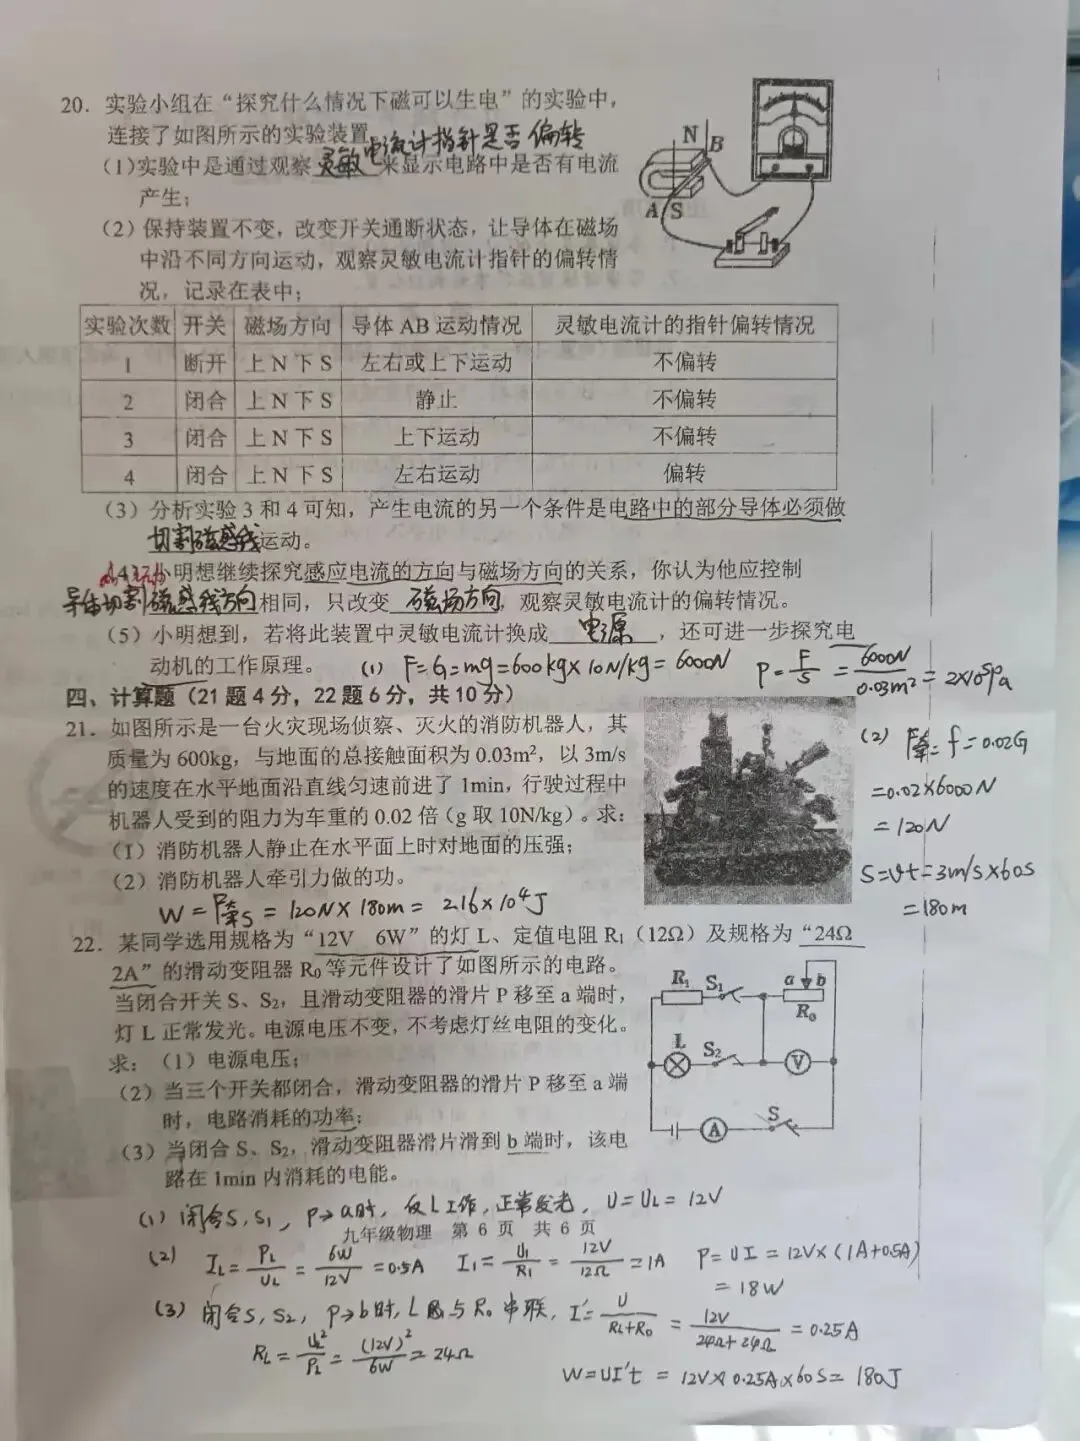 20．实验小组在“探究什么情况下磁可以生电”的实验中，
连接了如图所示的实验装置
(1)实验中是通过观察灵敏电流计指针是否偏转来显示电路中是否有电流
产生；
(2) 保持装置不变，改变开关通断状态，让导体在磁场
中沿不同方向运动，观察灵敏电流计指针的偏转情
况，记录在表中；
N
B
A S
实验次数 开关 磁场方向 导体 AB 运动情况 灵敏电流计的指针偏转情况
1 断开 上 N 下 S 左右或上下运动 不偏转
2 闭合 上 N 下 S 静止 不偏转
3 闭合 上 N 下 S 上下运动 不偏转
4 闭合 上 N 下 S 左右运动 偏转
(3) 分析实验 3 和 4 可知，产生电流的另一个条件是电路中的部分导体必须做
切割磁感线运动。
小明想继续探究感应电流的方向与磁场方向的关系，你认为他应控制
导体切割磁感线方向相同，只改变 磁场方向，观察灵敏电流计的偏转情况。
(5) 小明想到，若将此装置中灵敏电流计换成 电源 ，还可进一步探究电
动机的工作原理。
(1) F=G=mg=600kg×10N/kg=6000N P=F/S=6000N/0.03m²=2×10⁵Pa
四、计算题（21 题 4 分，22 题 6 分，共 10 分）
21．如图所示是一台火灾现场侦察、灭火的消防机器人，其
质量为 600kg，与地面的总接触面积为 0.03m²，以 3m/s
的速度在水平地面沿直线匀速前进了 1min，行驶过程中
机器人受到的阻力为车重的 0.02 倍（g 取 10N/kg）。求：
(1) 消防机器人静止在水平面上时对地面的压强；
(2) 消防机器人牵引力做的功。
(2) F牵=f=0.02G
=0.02×6000N
=120N
S=vt=3m/s×60s
=180m
W=F牵s=120N×180m=2.16×10⁴J
22．某同学选用规格为“12V 6W”的灯 L、定值电阻 R₁（12Ω）及规格为“24Ω
2A”的滑动变阻器 R₀ 等元件设计了如图所示的电路。
当闭合开关 S、S₂，且滑动变阻器的滑片 P 移至 a 端时，
灯 L 正常发光。电源电压不变，不考虑灯丝电阻的变化。
求：（1）电源电压；
(2) 当三个开关都闭合，滑动变阻器的滑片 P 移至 a 端
时，电路消耗的功率；
(3) 当闭合 S、S₂，滑动变阻器滑片滑到 b 端时，该电
路在 1min 内消耗的电能。
R₁ S₁ a b
R₀
L S₂ V
A S
(1) 闭合S, S₁, P→a时, 仅L工作, 正常发光, U=UL=12V
九年级物理 第 6 页 共 6 页
(2) IL=PL/UL=6W/12V=0.5A I₁=U₁/R₁=12V/12Ω=1A P=UI=12V×(1A+0.5A)
=18W
(3) 闭合S, S₂, P→b时, L与R₀串联, I'=U/RL+R₀=12V/24Ω+24Ω=0.25A
RL=UL²/PL=(12V)²/6W=24Ω
W=UI't=12V×0.25A×60S=180J